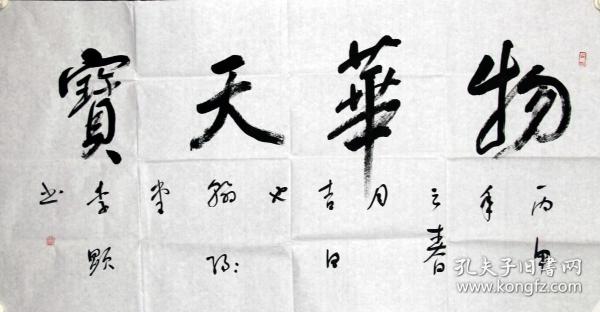 物華天寶
丙
年
之春
月
吉日
翰
堂
李顯
书
孔夫子旧书网
www.kongfz.com